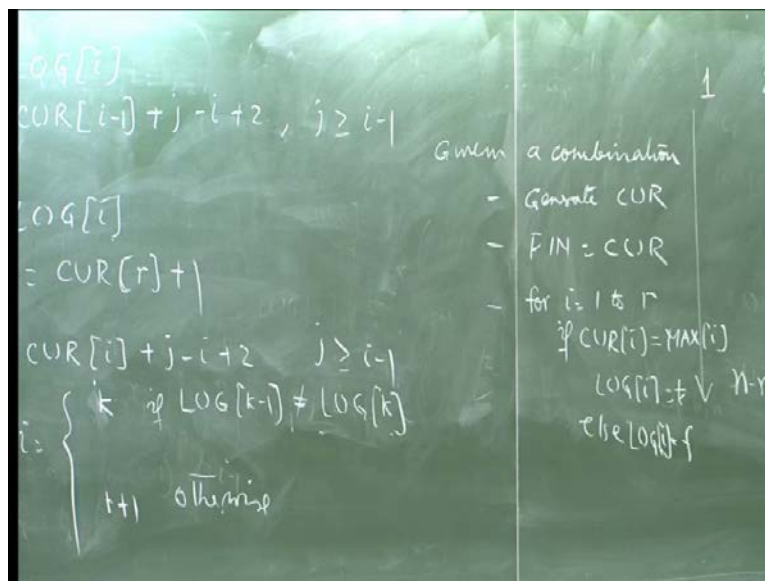 LOG[i]
CUR[i-1]+j-i+2, j≥i-1
LOG[i]
= CUR[r]+1
CUR[i]+j-i+2 j≥i-1
i= { k if LOG[k-1]≠LOG[k]
r+1 otherwise
1
Given a combination
- Generate CUR
- FIN = CUR
- for i=1 to r
if CUR[i]=MAX[i]
LOG[i]=t
else LOG[i]=f